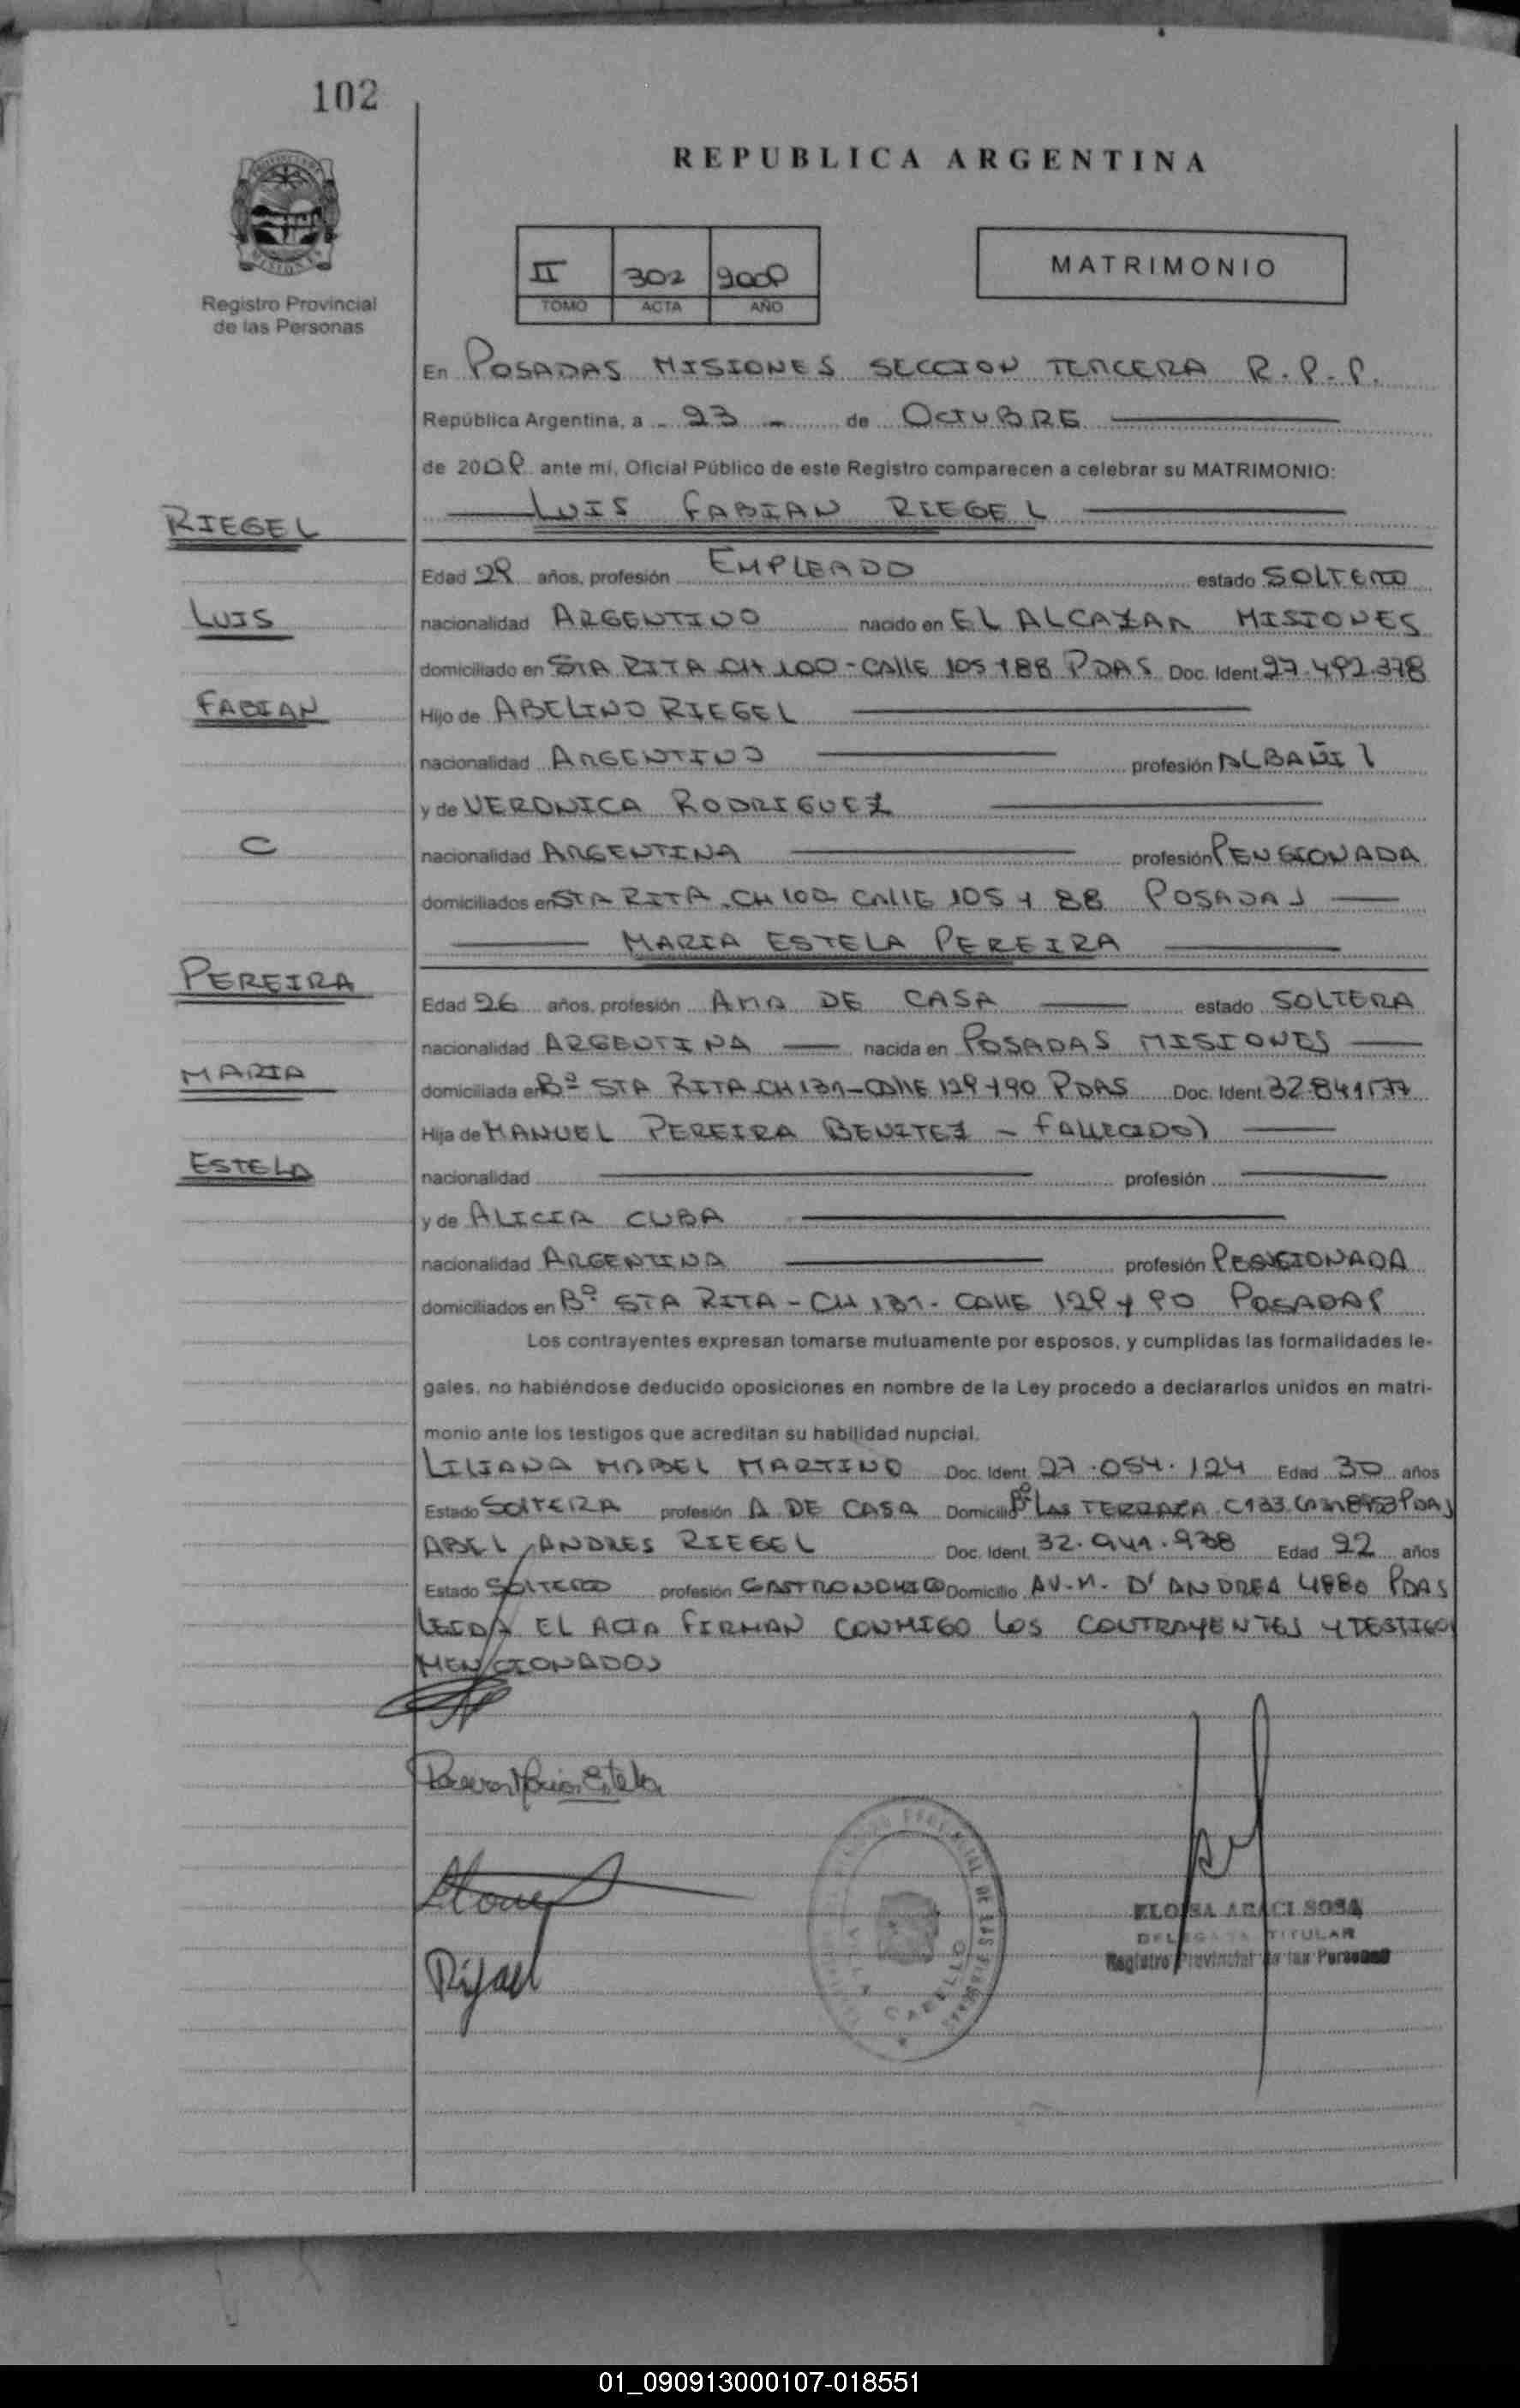 102
REPUBLICA ARGENTINA
MATRIMONIO
II 302
TOMO ACTA AÑO
Registro Provincial
de las Personas
En POSADAS MISIONES SECCION TERCERA R.P.P.
República Argentina, a 23 de OCTUBRE
de 200 ante mí, Oficial Público de este Registro comparecen a celebrar su MATRIMONIO:
LUIS FABIAN RIEGEL
RIEGEL
Edad años, profesión EMPLEADO estado SOLTERO
LUIS
nacionalidad ARGENTINO nacido en EL ALCAZAR MISIONES
domiciliado en STA RITA CH 100 - CALLE 105 Y 88 PDAS Doc. Ident 27.492.378
FABIAN
Hijo de ABELINO RIEGEL
nacionalidad ARGENTINO profesión ALBAÑIL
y de VERONICA RODRIGUEZ
C
nacionalidad ARGENTINA profesión PENSIONADA
domiciliados en STA RITA CH 100 CALLE 105 Y 88 POSADAS
MARIA ESTELA PEREIRA
PEREIRA
Edad 26 años, profesión AMA DE CASA estado SOLTERA
nacionalidad ARGENTINA nacida en POSADAS MISIONES
MARIA
domiciliada en Bº STA RITA CH 131 - CALLE 129 Y 90 PDAS Doc. Ident.
Hija de MANUEL PEREIRA BENITEZ - FALLECIDO)
ESTELA
nacionalidad profesión
y de ALICIA CUBA
nacionalidad ARGENTINA profesión PENSIONADA
domiciliados en Bº STA RITA - CH 131 - CALLE 129 Y 90 POSADAS
Los contrayentes expresan tomarse mutuamente por esposos, y cumplidas las formalidades le-
gales, no habiéndose deducido oposiciones en nombre de la Ley procedo a declararlos unidos en matri-
monio ante los testigos que acreditan su habilidad nupcial.
LILIANA MABEL MARTINO Doc. Ident. 27.054.124 Edad 30 años
Estado SOLTERA profesión A DE CASA Domicilio Bº LAS TERRAZA
ABEL ANDRES RIEGEL Doc. Ident. 32.041.938 Edad 22 años
Estado SOLTERO profesión GASTRONOMICO Domicilio AV. M. D'ANDREA 4880 PDAS
LEIDA EL ACTA FIRMAN CONMIGO LOS CONTRAYENTES Y TESTIGOS
MENCIONADOS
Pereira Maria Estela
ELOISA ARACI SOSA
DELEGADA TITULAR
Registro Provincial de las Personas
01_090913000107-018551